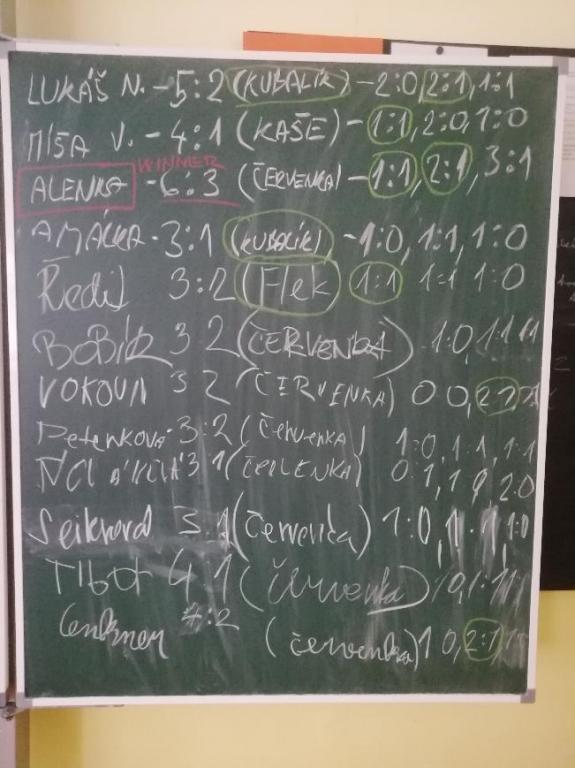 LUKÁŠ N. - 5:2 (KUBALÍK) - 2:0, 2:1, 1:1
MÍŠA V. - 4:1 (KAŠE) - 1:1, 2:0, 1:0
WINNER
ALENKA - 6:3 (ČERVENKA) - 1:1, 2:1, 3:1
AMÁLKA - 3:1 (KUBALÍK) - 1:0, 1:1, 1:0
Ředil 3:2 (Flek) 1:1 1:1 1:0
3:2 (ČERVENKA) 1:0, 1:1
VOKOUN 3 2 (ČERVENKA) 0 0, 2:1,
Petenková 3:2 (červenka) 1:0, 1:1, 1:1
3 1 (ČERVENKA) 0:1, 1 2:0
3:1 (červenka) 1:0, 1:1, 1:0
Tibor 4 1 (Červenka) 1:0, 1:1
4:2
(červenka) 1 0, 2:1,